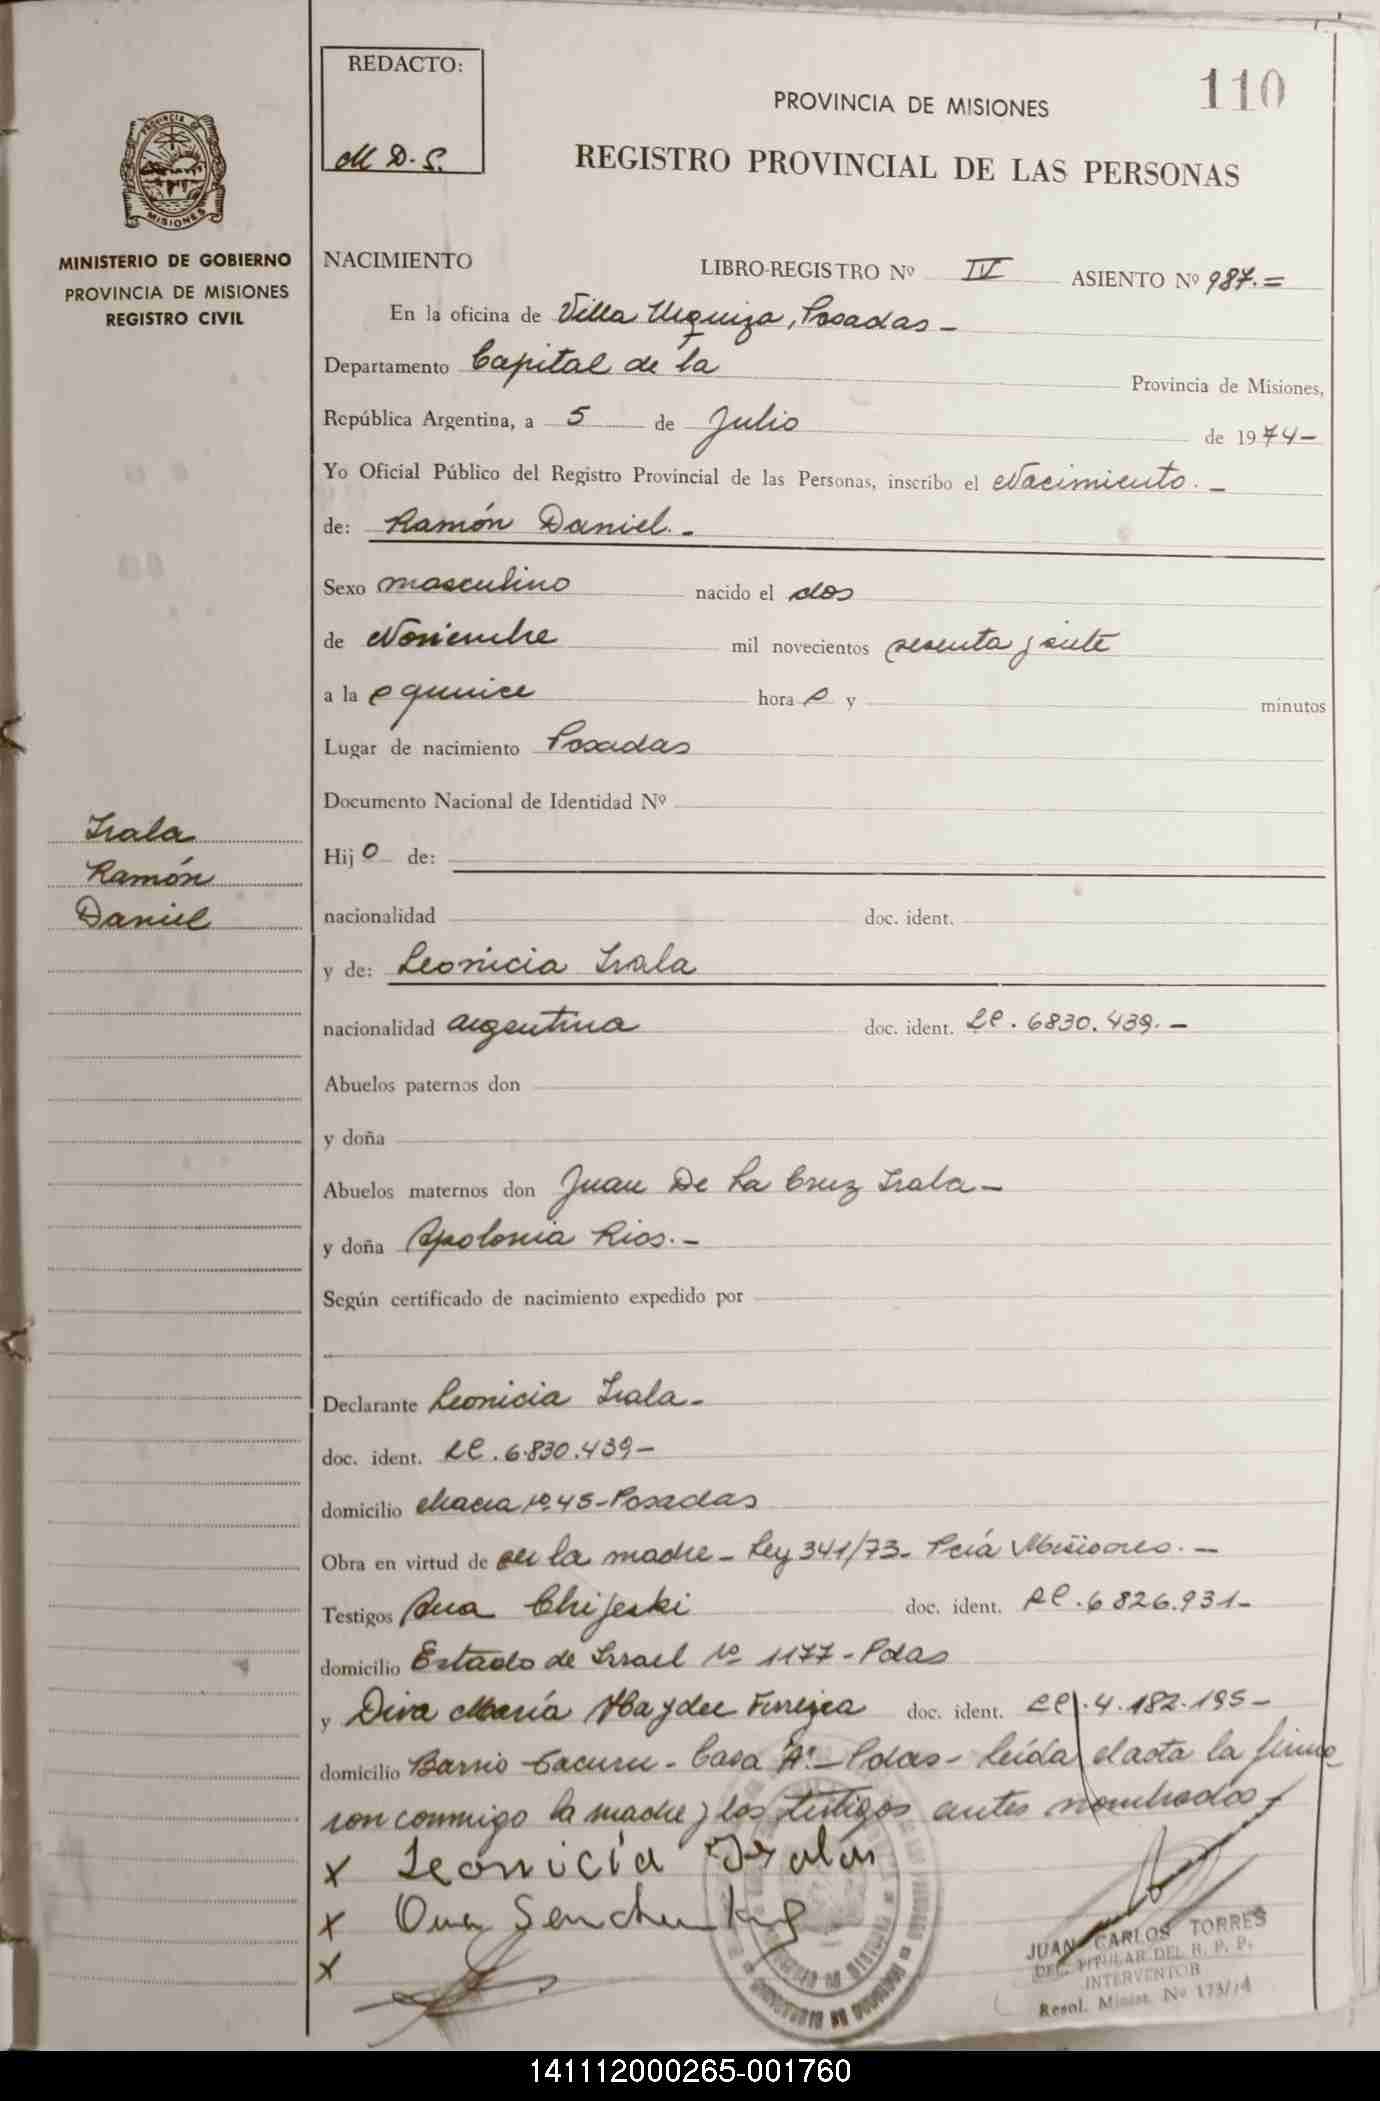 REDACTO:
M D. S.
110
PROVINCIA DE MISIONES
REGISTRO PROVINCIAL DE LAS PERSONAS
PROVINCIA DE
MISIONES
MINISTERIO DE GOBIERNO
PROVINCIA DE MISIONES
REGISTRO CIVIL
NACIMIENTO LIBRO-REGISTRO Nº IV ASIENTO Nº 987.=
En la oficina de Villa Urquiza, Posadas -
Departamento Capital de la Provincia de Misiones,
República Argentina, a 5 de Julio de 1974-
Yo Oficial Público del Registro Provincial de las Personas, inscribo el Nacimiento. -
de: Ramón Daniel. -
Sexo masculino nacido el dos
de Noviembre mil novecientos sesenta y siete
a la s quince hora s y minutos
Lugar de nacimiento Posadas
Documento Nacional de Identidad Nº
Irala
Ramón
Daniel
Hij o de:
nacionalidad doc. ident.
y de: Leonicia Irala
nacionalidad argentina doc. ident. LC. 6830.439. -
Abuelos paternos don
y doña
Abuelos maternos don Juan De La Cruz Irala -
y doña Apolonia Rios. -
Según certificado de nacimiento expedido por
Declarante Leonicia Irala -
doc. ident. LC. 6.830.439 -
domicilio Chacra Nº 45 - Posadas
Obra en virtud de ser la madre - Ley 341/73 - Pcia Misiones. -
Testigos Ana doc. ident. LC. 6826.931 -
domicilio Estado de Israel Nº 1177 - Pdas
y Diva María Haydee Ferreyra doc. ident. LC. 4.182.195 -
domicilio Barrio Tacuru - Casa "A" - Pdas - leída el acta la firma-
ron conmigo la madre y los testigos antes nombrados -
x Leonicia Irala
x Ana
x
JUAN CARLOS TORRES
DEL. TITULAR DEL R. P. P.
INTERVENTOR
Resol. Minist. Nº 173/74
141112000265-001760